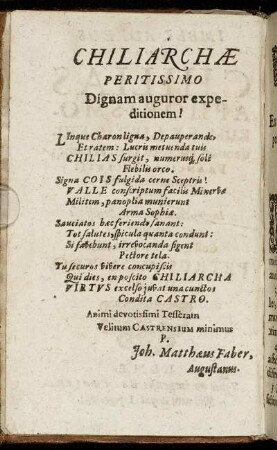 CHILIARCHÆ
PERITISSIMO
Dignam auguror expe-
ditionem!
LInque Charon ligna, Depauperande,
Et ratem: Lucris metuenda tuis
CHILIAS surgit, numerusq́, soli
Flebilis orco.
Signa COIS fulgida cerne Sceptris!
VALLE conscriptum facilis Minervæ
Militem, panoplia munierunt
Arma Sophiæ.
Sauciatos hac feriendo sanant:
Tot salutes, spicula quanta condunt:
Si favebunt, irrevocanda figent
Pectore tela.
Tu securos vivere concupiscis
Qui dies, en poscito CHILIARCHA
VIRTUS excelso juvat una cunctos
Condita CASTRO.
Animi devotissimi Tesseram
Velitum CASTRENSIUM minimus
P.
Joh. Matthæus Faber,
Augustanus.